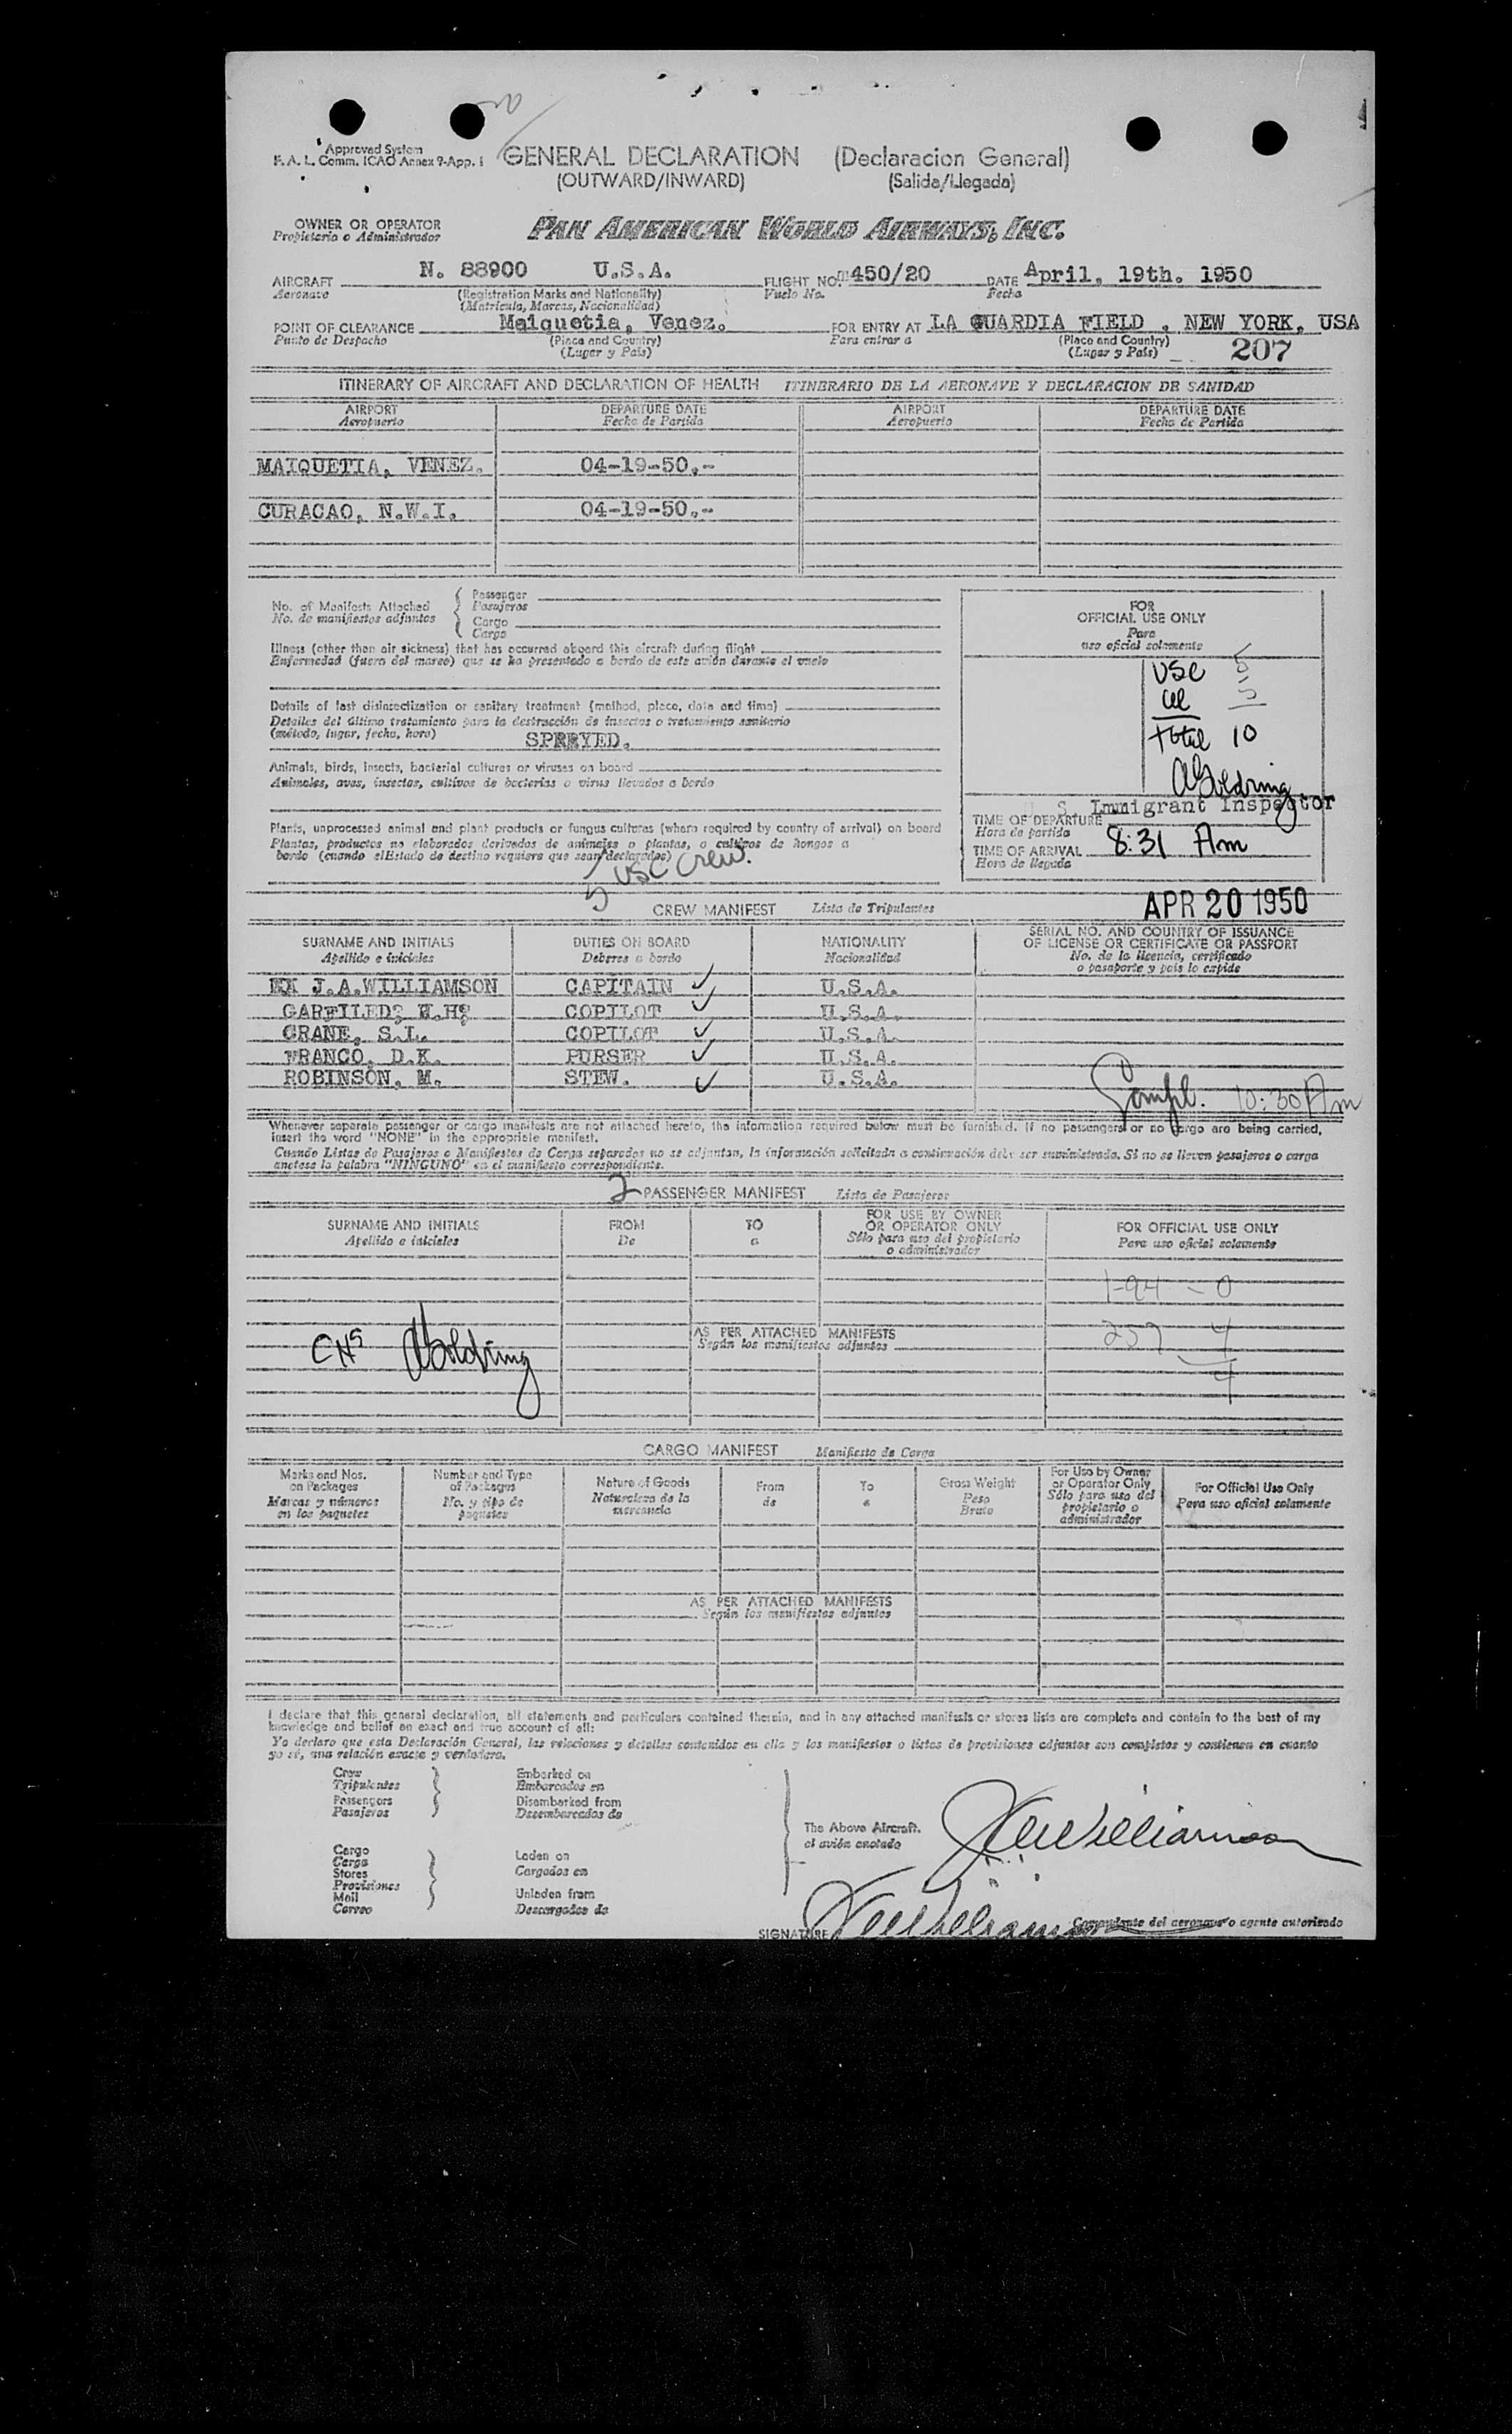 Approved System
F. A. L. Comm. ICAO Annex 9-App. 1
GENERAL DECLARATION (Declaracion General)
(OUTWARD/INWARD) (Salida/Llegada)
OWNER OR OPERATOR
Propietario o Administrador
PAN AMERICAN WORLD AIRWAYS, INC.
AIRCRAFT N. 88900 U.S.A. FLIGHT NO. 450/20 DATE April, 19th. 1950
Aeronave (Registration Marks and Nationality) Vuelo No. Fecha
(Matricula, Marcas, Nacionalidad)
POINT OF CLEARANCE Maiquetia, Venez. FOR ENTRY AT LA GUARDIA FIELD , NEW YORK, USA
Punto de Despacho (Place and Country) Para entrar a (Place and Country)
(Lugar y Pais) (Lugar y Pais) 207
ITINERARY OF AIRCRAFT AND DECLARATION OF HEALTH ITINERARIO DE LA AERONAVE Y DECLARACION DE SANIDAD
AIRPORT DEPARTURE DATE AIRPORT DEPARTURE DATE
Aeropuerto Fecha de Partida Aeropuerto Fecha de Partida
MAIQUETIA, VENEZ. 04-19-50.-
CURACAO, N.W.I. 04-19-50.-
No. of Manifests Attached
No. de manifiestos adjuntos
Passenger
Pasajeros
Cargo
Carga
Illness (other than air sickness) that has occurred aboard this aircraft during flight
Enfermedad (fuera del mareo) que se ha presentado a bordo de este avión durante el vuelo
Details of last disinsectization or sanitary treatment (method, place, date and time)
Detalles del último tratamiento para la destrucción de insectos o tratamiento sanitario
(método, lugar, fecha, hora) SPRRYED.
Animals, birds, insects, bacterial cultures or viruses on board
Animales, aves, insectos, cultivos de bacterias o virus llevados a bordo
Plants, unprocessed animal and plant products or fungus cultures (where required by country of arrival) on board
Plantas, productos no elaborados derivados de animales o plantas, o cultivos de hongos a
bordo (cuando el Estado de destino requiera que sean declarados)
5 USC Crew.
FOR
OFFICIAL USE ONLY
Para
uso oficial solamente
USC 5
5
Total 10
AGoldring
U S Immigrant Inspector
TIME OF DEPARTURE
Hora de partida
TIME OF ARRIVAL 8:31 Am
Hora de llegada
APR 20 1950
CREW MANIFEST Lista de Tripulantes
SURNAME AND INITIALS DUTIES ON BOARD NATIONALITY SERIAL NO. AND COUNTRY OF ISSUANCE
OF LICENSE OR CERTIFICATE OR PASSPORT
Apellido e iniciales Deberes a bordo Nacionalidad No. de la licencia, certificado
o pasaporte y pais lo expide
J.A.WILLIAMSON CAPITAIN ✓ U.S.A.
GARFILED, W.H. COPILOT ✓ U.S.A.
CRANE, S.L. COPILOT ✓ U.S.A.
FRANCO, D.K. PURSER ✓ U.S.A.
ROBINSON, M. STEW. ✓ U.S.A.
Compl. 10:30 Am
Whenever separate passenger or cargo manifests are not attached hereto, the information required below must be furnished. If no passengers or no cargo are being carried,
insert the word "NONE" in the appropriate manifest.
Cuando Listas de Pasajeros o Manifiestos de Carga separados no se adjuntan, la información solicitada a continuación debe ser suministrada. Si no se lleven pasajeros o carga
anotese la palabra "NINGUNO" en el manifiesto correspondiente.
2 PASSENGER MANIFEST Lista de Pasajeros
SURNAME AND INITIALS FROM TO FOR USE BY OWNER
OR OPERATOR ONLY FOR OFFICIAL USE ONLY
Apellido e iniciales De a Sólo para uso del propietario
o administrador Para uso oficial solamente
I-94 - 0
AS PER ATTACHED MANIFESTS 257 4
Según los manifiestos adjuntos
4
AGoldring
CARGO MANIFEST Manifiesto de Carga
Marks and Nos.
on Packages
Marcas y números
en los paquetes
Number and Type
of Packages
No. y tipo de
paquetes
Nature of Goods
Naturaleza de la
mercancia
From
de
To
a
Gross Weight
Peso
Bruto
For Use by Owner
or Operator Only
Sólo para uso del
propietario o
administrador
For Official Use Only
Para uso oficial solamente
AS PER ATTACHED MANIFESTS
Según los manifiestos adjuntos
I declare that this general declaration, all statements and particulars contained therein, and in any attached manifests or stores lists are complete and contain to the best of my
knowledge and belief an exact and true account of all:
Yo declaro que esta Declaración General, las relaciones y detalles contenidos en ella y los manifiestos o listas de provisiones adjuntos son completos y contienen en cuanto
yo sé, una relación exacta y verdadera.
Crew
Tripulantes
Passengers
Pasajeros
Embarked on
Embarcados en
Disembarked from
Desembarcados de
Cargo
Carga
Stores
Provisiones
Mail
Correo
Laden on
Cargados en
Unladen from
Descargados de
The Above Aircraft.
el avión anotado
JAWilliamson
SIGNATURE JAWilliamson Comandante del aeronave o agente autorizado